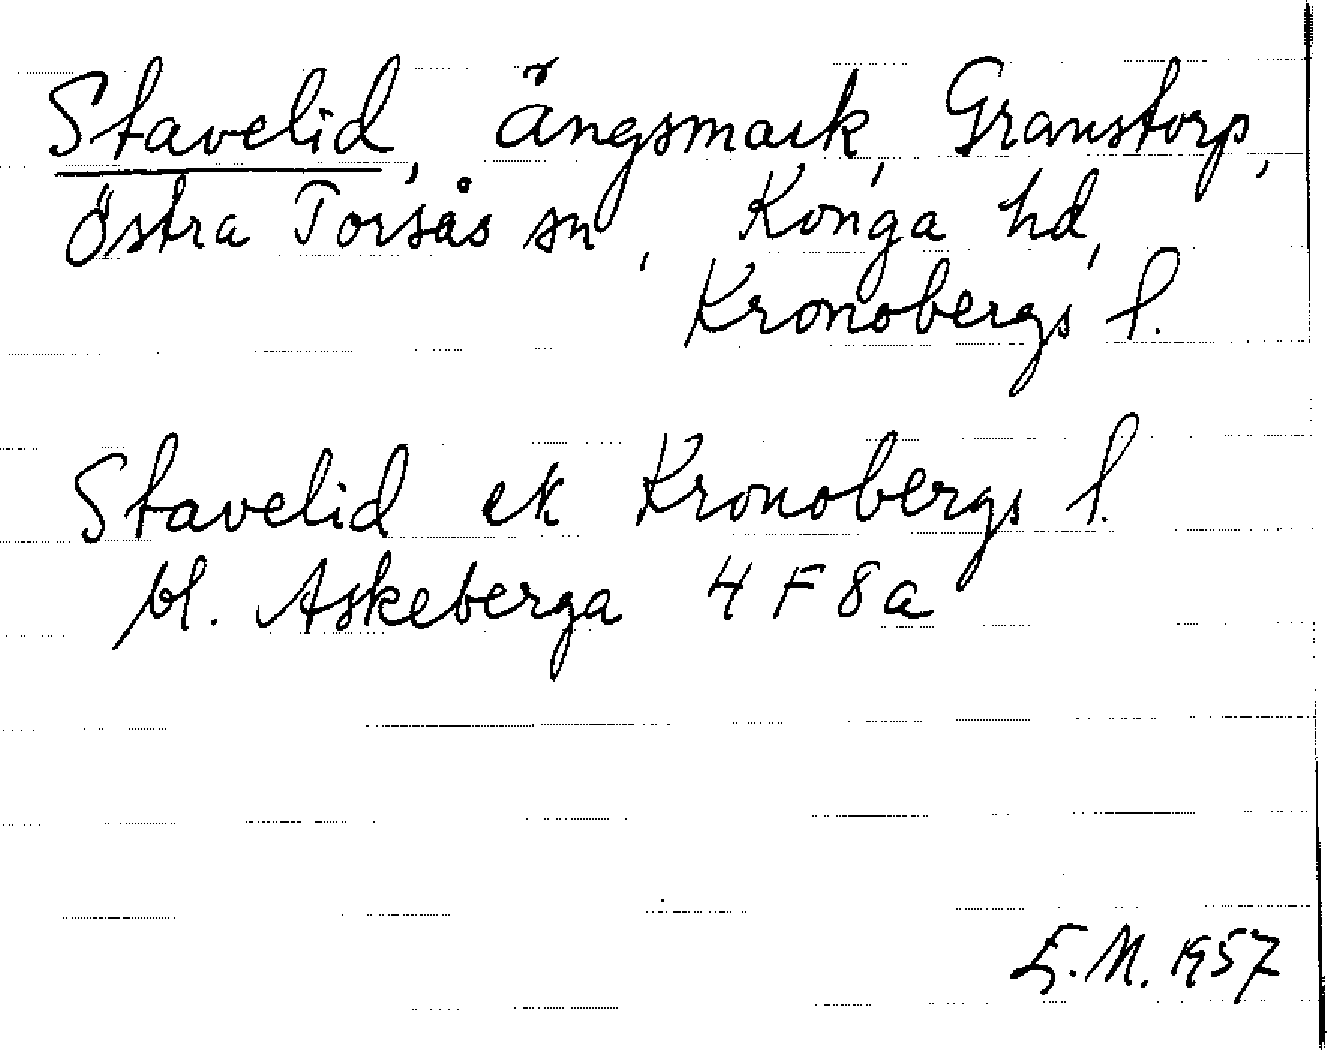 Stavelid, ängsmark, Granstorp,
Östra Torsås sn, Konga hd,
Kronobergs l.
Stavelid ek Kronobergs l.
bl. Askeberga 4 F 8 a
E.M. 1957